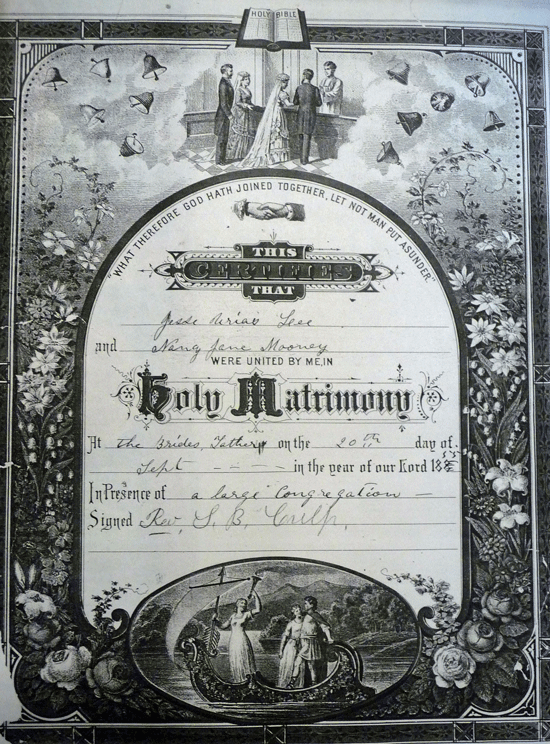 HOLY BIBLE
"WHAT THEREFORE GOD HATH JOINED TOGETHER, LET NOT MAN PUT ASUNDER"
THIS
CERTIFIES
THAT
Jesse Uriar Lee
and Nancy Jane Mooney
WERE UNITED BY ME, IN
Holy Matrimony
At the Brides, Fathers on the 20th day of
Sept in the year of our Lord 18
In Presence of a large Congregation
Signed Rev. S. B. Culp.